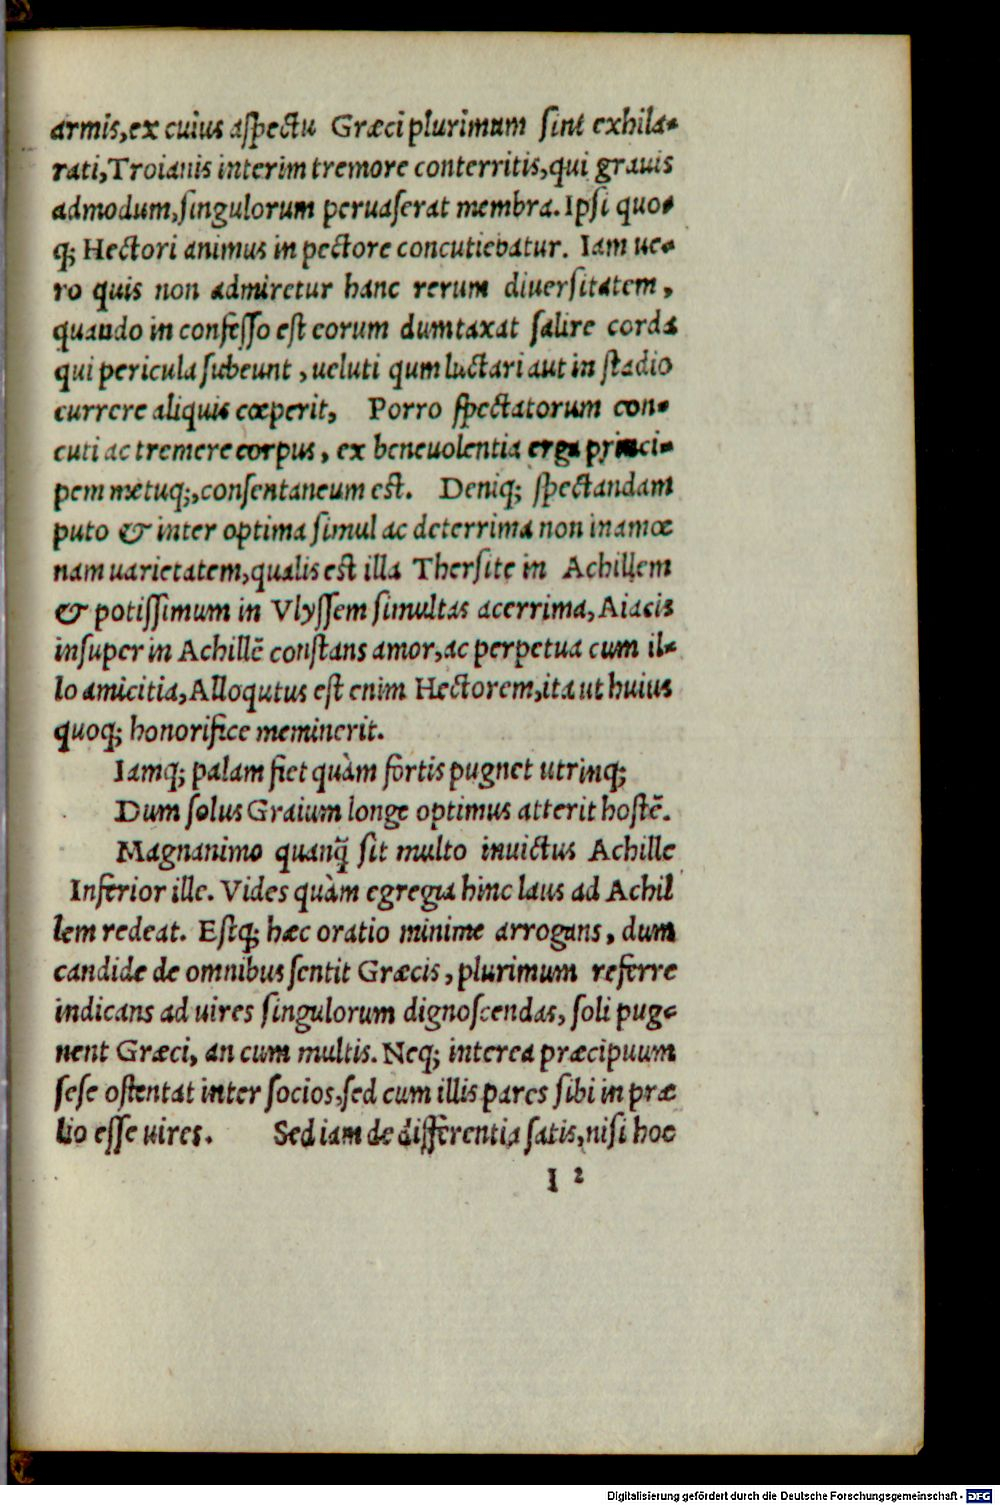 armis,ex cuius aſpectu Græci plurimum ſint exhila-
rati,Troianis interim tremore conterritis,qui grauis
admodum,ſingulorum peruaſerat membra.Ipſi quo-
q; Hectori animus in pectore concutiebatur. Iam ue-
ro quis non admiretur hanc rerum diuerſitatem,
quando in confeſſo eſt eorum dumtaxat ſalire corda
qui pericula ſubeunt, ueluti qum luctari aut in ſtadio
currere aliquis cœperit, Porro ſpectatorum con-
cuti ac tremere corpus, ex beneuolentia erga princi-
pem metuq;,conſentaneum eſt. Deniq; ſpectandam
puto & inter optima ſimul ac deterrima non inamœ
nam uarietatem,qualis eſt illa Therſite in Achillem
& potiſſimum in Vlyſſem ſimultas acerrima,Aiacis
inſuper in Achillē conſtans amor,ac perpetua cum il-
lo amicitia,Alloqutus eſt enim Hectorem,ita ut huius
quoq; honorifice meminerit.
Iamq; palam fiet quàm fortis pugnet utrinq;
Dum ſolus Graium longe optimus atterit hoſtē.
Magnanimo quanq̃ ſit multo inuictus Achille
Inferior ille. Vides quàm egregia hinc laus ad Achil
lem redeat. Eſtq; hæc oratio minime arrogans, dum
candide de omnibus ſentit Græcis, plurimum referre
indicans ad uires ſingulorum dignoſcendas, ſoli pug-
nent Græci, an cum multis. Neq; interea præcipuum
ſeſe oſtentat inter ſocios,ſed cum illis pares ſibi in præ
lio eſſe uires. Sed iam de differentia ſatis,niſi hoc
I 2
Digitalisierung gefördert durch die Deutsche Forschungsgemeinschaft - DFG